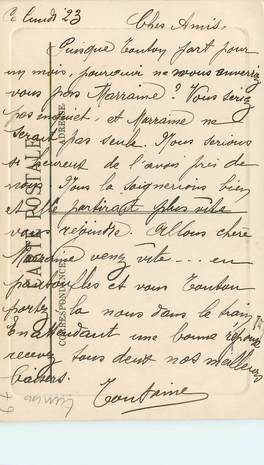 Ce lundi 23
Chers Amis.
Puisque Tonton part pour
un mois, pourquoi ne nous enverriez
vous pas Marraine? Vous seriez
pas inquiet, et Marraine ne
serait pas seule. Nous serions
si heureux de l'avoir près de
nous. Nous la soignerions bien
et elle partirait plus vite
vous rejoindre. Allons chère
Marraine venez vite... en
pantoufles et vous Tonton
portez la nous dans le train
En attendant une bonne réponse
recevez tous deux nos meilleurs
baisers.
CARTE POSTALE
CORRESPONDANCE
ADRESSE